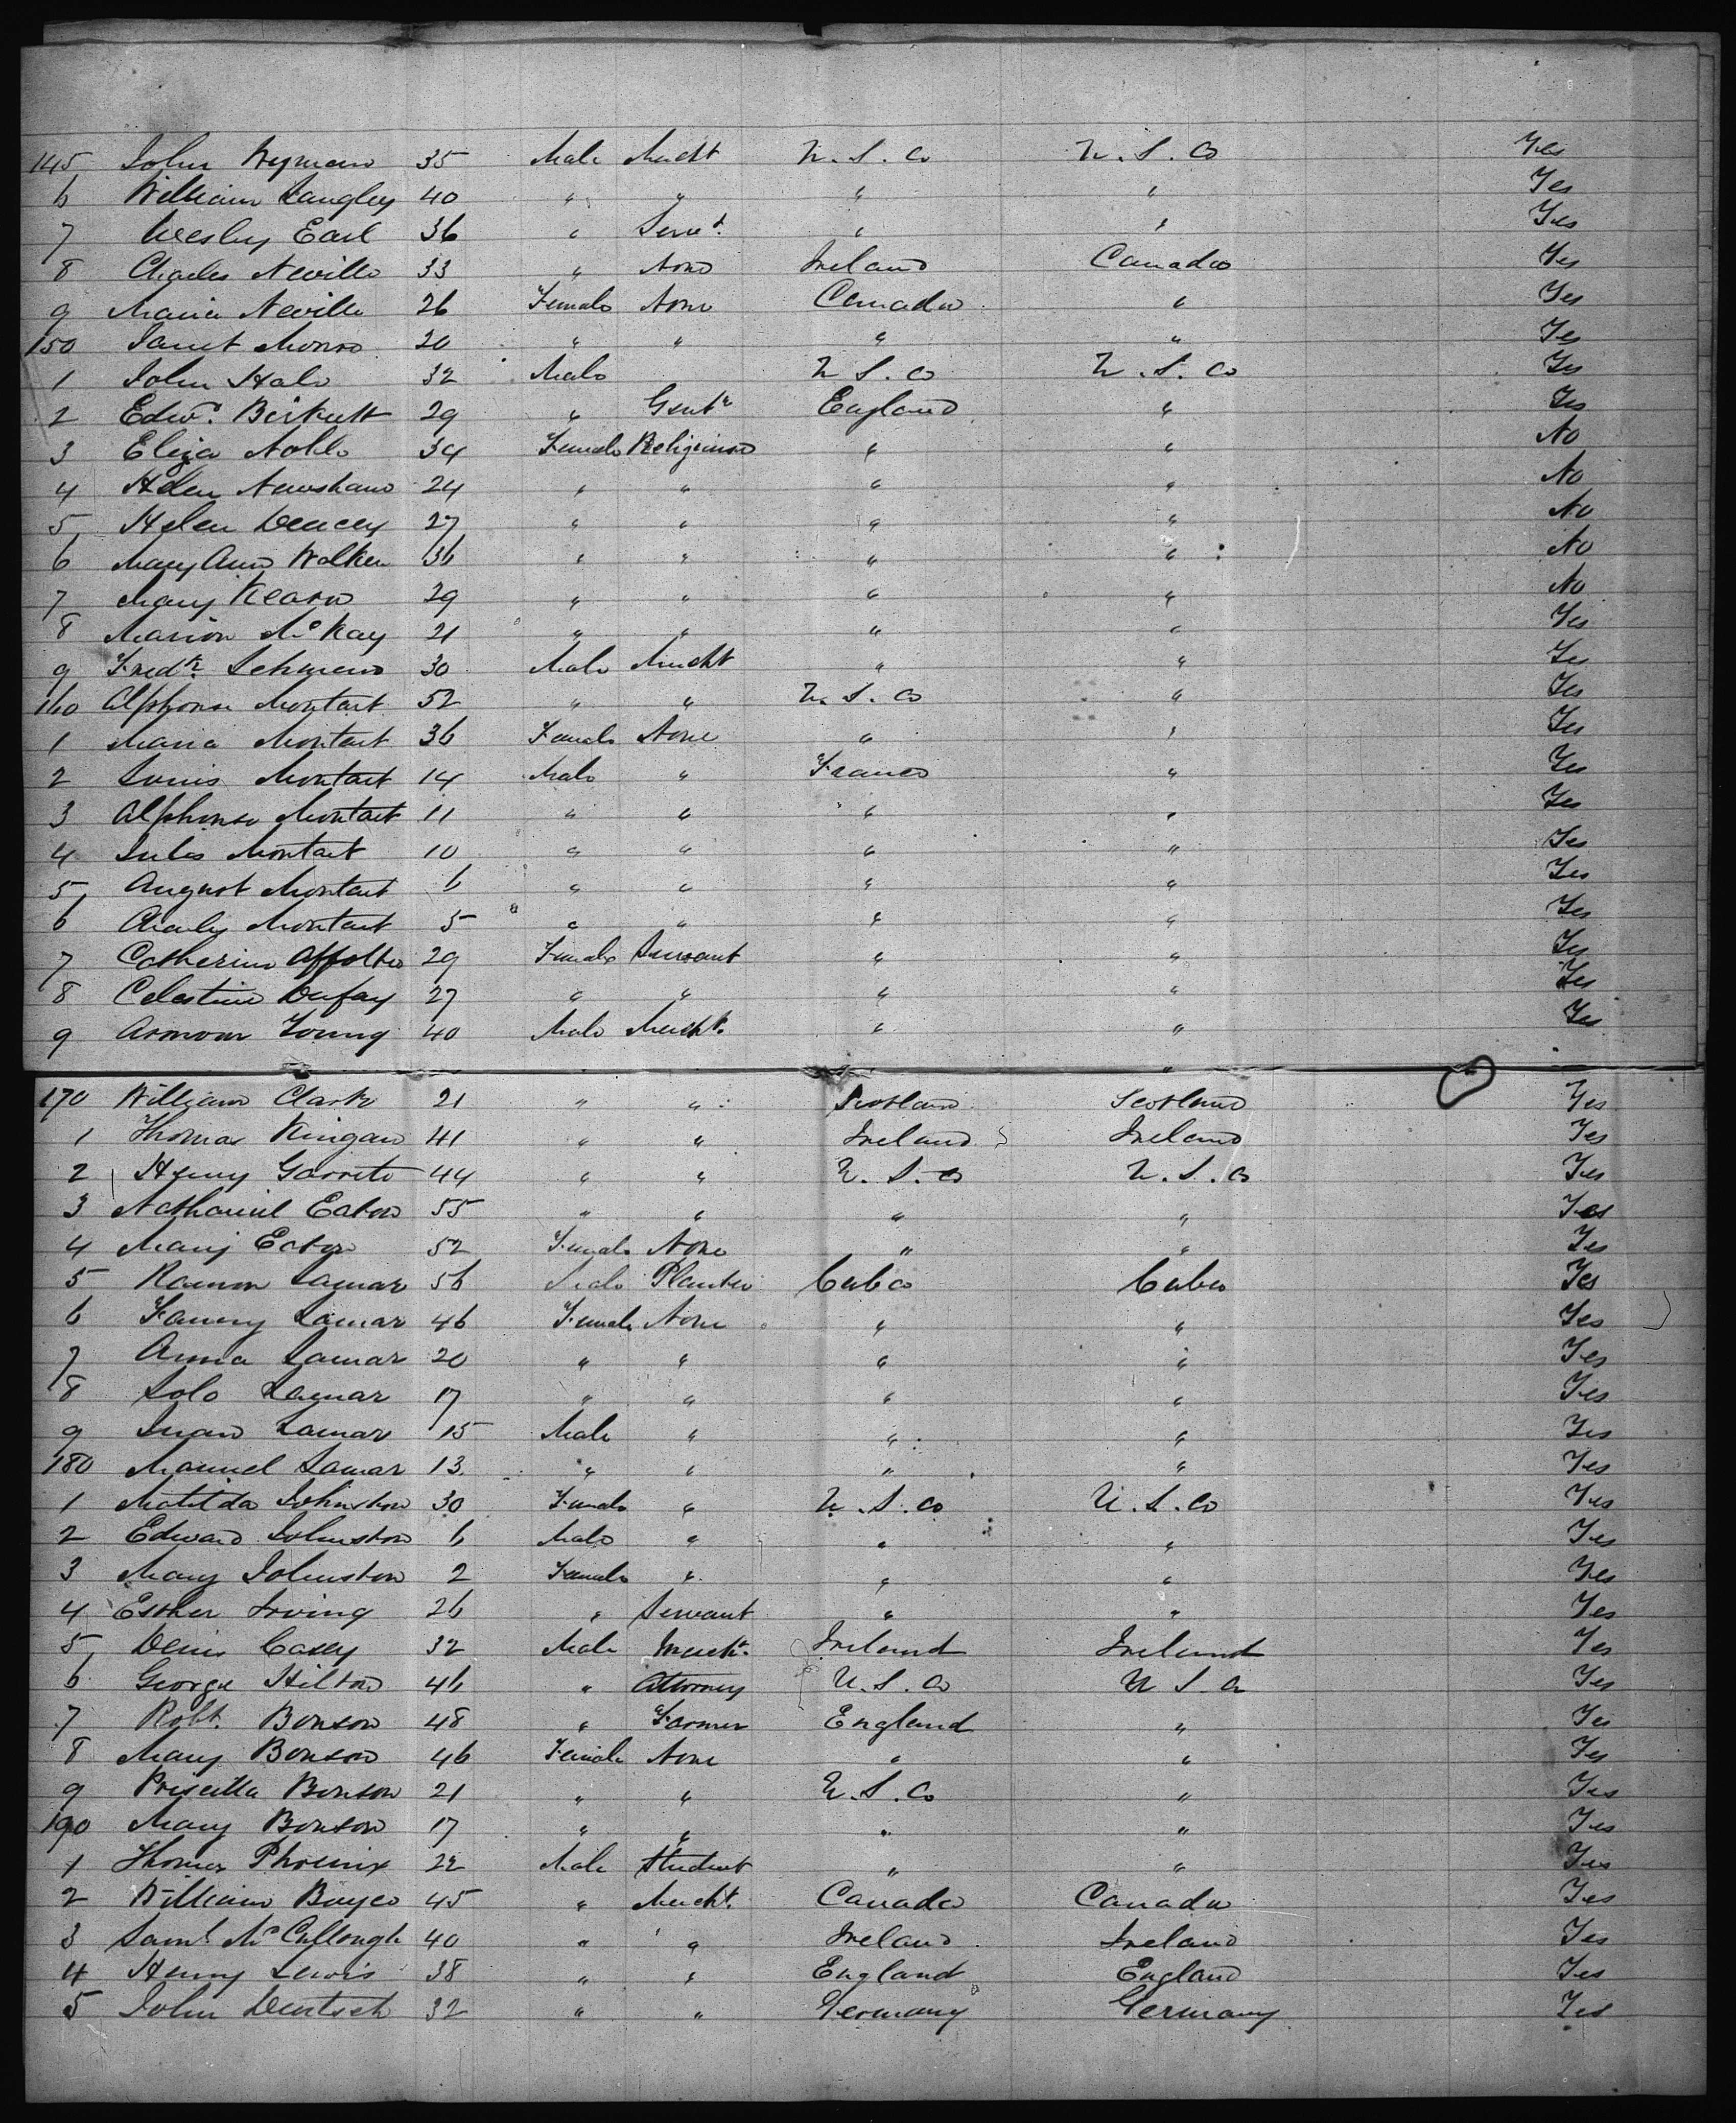 145 John Wyman 35 Male Mercht U. S. Co U. S. Co Yes
6 William Langley 40 " " " " Yes
7 Wesley Earl 36 " Servt. " " Yes
8 Charles Neville 33 " None Ireland Canada Yes
9 Maria Neville 26 Female None Canada " Yes
150 Janet Monro 20 " " " " Yes
1 John Hale 32 Male U. S. Co U. S. Co Yes
2 Edwd. Birkett 29 " Gentn England " Yes
3 Eliza Noble 34 Female Religious " " No
4 Helen Newsham 24 " " " " No
5 Helen 27 " " " " No
6 Mary Ann Walker 36 " " " " No
7 Mary Kearn 29 " " " " No
8 Marion McKay 21 " " " " Yes
9 Fredk. 30 Male Mercht " " Yes
160 Alphonse Montant 52 " " U. S. Co " Yes
1 Maria Montant 36 Female None " " Yes
2 Louis Montant 14 Male " France " Yes
3 Alphonse Montant 11 " " " " Yes
4 Jules Montant 10 " " " " Yes
5 August Montant 6 " " " " Yes
6 Charles Montant 5 " " " " Yes
7 Catherine Affolter 29 Female Servant " " Yes
8 Celestine Dufay 27 " " " " Yes
9 Armour Young 40 Male Mercht. " " Yes
170 William Clark 21 " " Scotland Scotland Yes
1 Thomas Kingan 41 " " Ireland Ireland Yes
2 Henry Garrett 44 " " U. S. Co U. S. Co Yes
3 Nathaniel Eaton 55 " " " " Yes
4 Mary Eaton 52 Female None " " Yes
5 Ramon Lamar 56 Male Planter Cuba Cuba Yes
6 Fanny Lamar 46 Female None " " Yes
7 Anna Lamar 20 " " " " Yes
8 Lolo Lamar 17 " " " " Yes
9 Juan Lamar 15 Male " " " Yes
180 Manuel Lamar 13 " " " " Yes
1 Matilda Johnston 30 Female " U. S. Co U. S. Co Yes
2 Edward Johnston 6 Male " " " Yes
3 Mary Johnston 2 Female " " " Yes
4 Esther Irving 26 " Servant " " Yes
5 Denis Casey 32 Male Mercht. Ireland Ireland Yes
6 George Hilton 46 " Attorney U. S. Co U. S. Co Yes
7 Robt. Bonson 48 " Farmer England " Yes
8 Mary Bonson 46 Female None " " Yes
9 Priscilla Bonson 21 " " U. S. Co " Yes
190 Mary Bonson 17 " " " " Yes
1 Thomas Phoenix 22 Male Student " " Yes
2 William Boyce 45 " Mercht. Canada Canada Yes
3 Saml. McCullough 40 " " Ireland Ireland Yes
4 Henry Lewis 38 " " England England Yes
5 John Deutsch 32 " " Germany Germany Yes